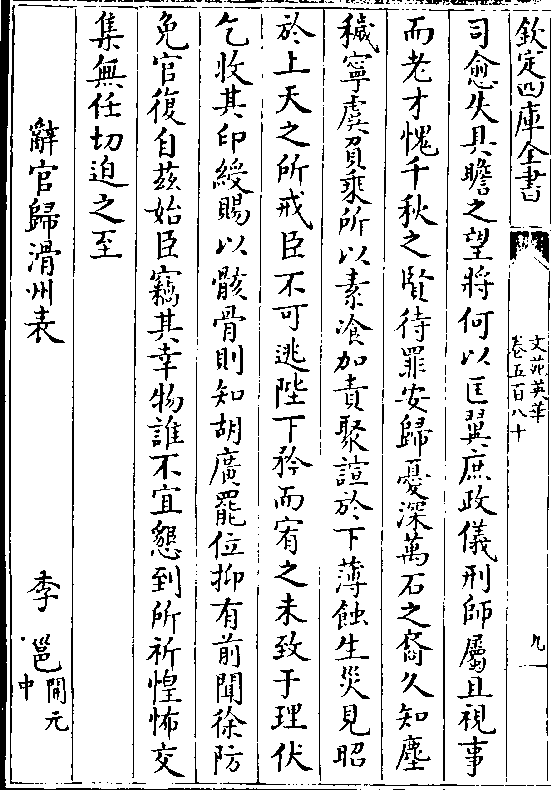 欽定四庫全書
文苑英華
卷五百八十
九
司愈失具瞻之望將何以匡翼庶政儀刑師屬且視事
而老才愧千秋之賢待罪安歸憂深萬石之裔久知塵
穢寧虞負乘所以素飡加責聚諠於下薄蝕生災見昭
於上天之所戒臣不可逃陛下矜而宥之未致于理伏
乞收其印綬賜以骸骨則知胡廣罷位抑有前聞徐防
免官復自茲始臣竊其幸物誰不宜懇到所祈惶怖交
集無任切迫之至
辭官歸滑州表 李邕 開元中